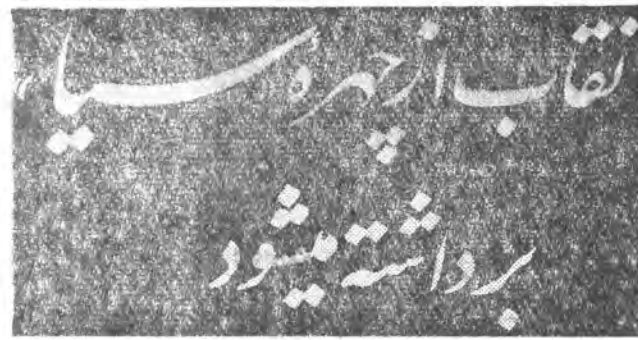 نقاب از چهرهٔ سیا"
برداشته میشود